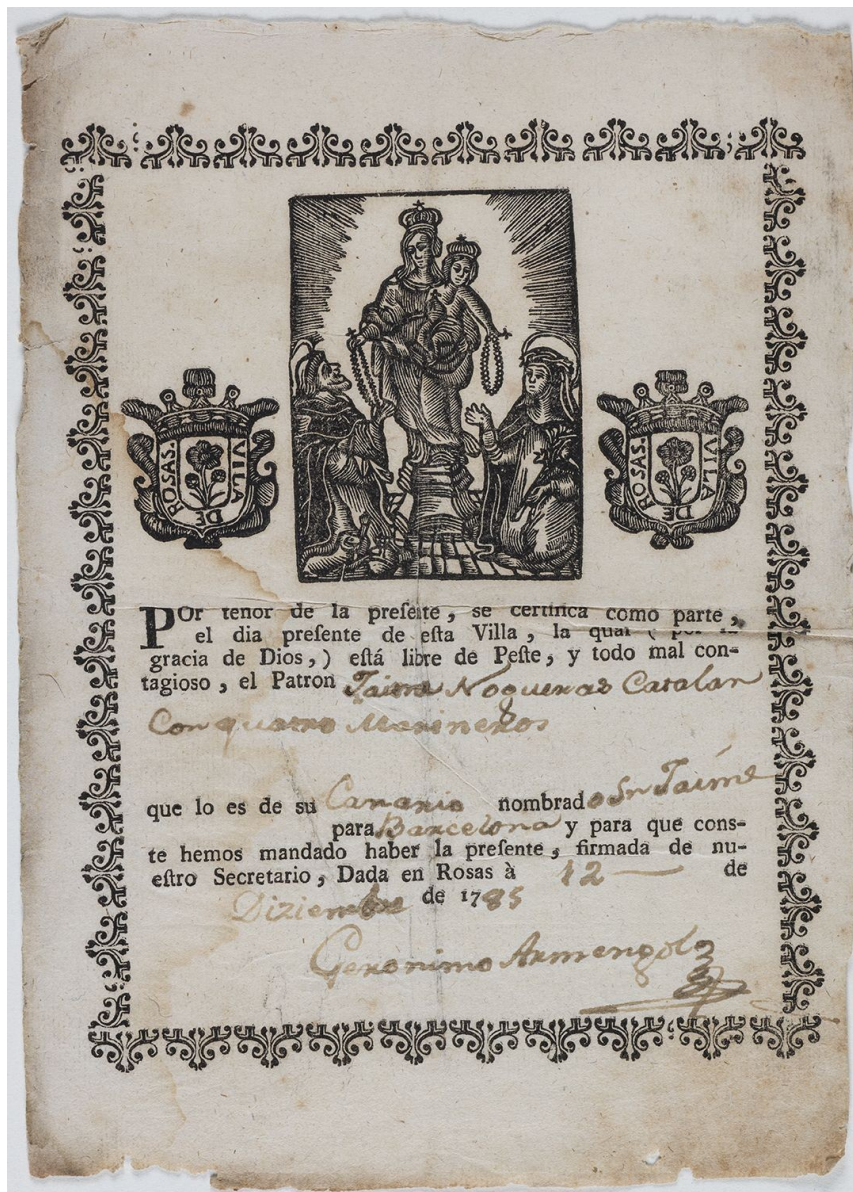 VILA DE ROSAS.
VILA DE ROSAS.
POr tenor de la preſente, se certifica como parte,
el dia preſente de eſta Villa, la qual ( por la
gracia de Dios,) está libre de Peſte, y todo mal con-
tagioso, el Patron Jaime Nogueras Catalan
Con quatro Marineros
que lo es de su Canario nombrado Sn Jaime
para Barcelona y para que cons-
te hemos mandado haber la preſente, firmada de nu-
eſtro Secretario, Dada en Rosas à 12 de
Diziembre de 1785
Geronimo Armengol